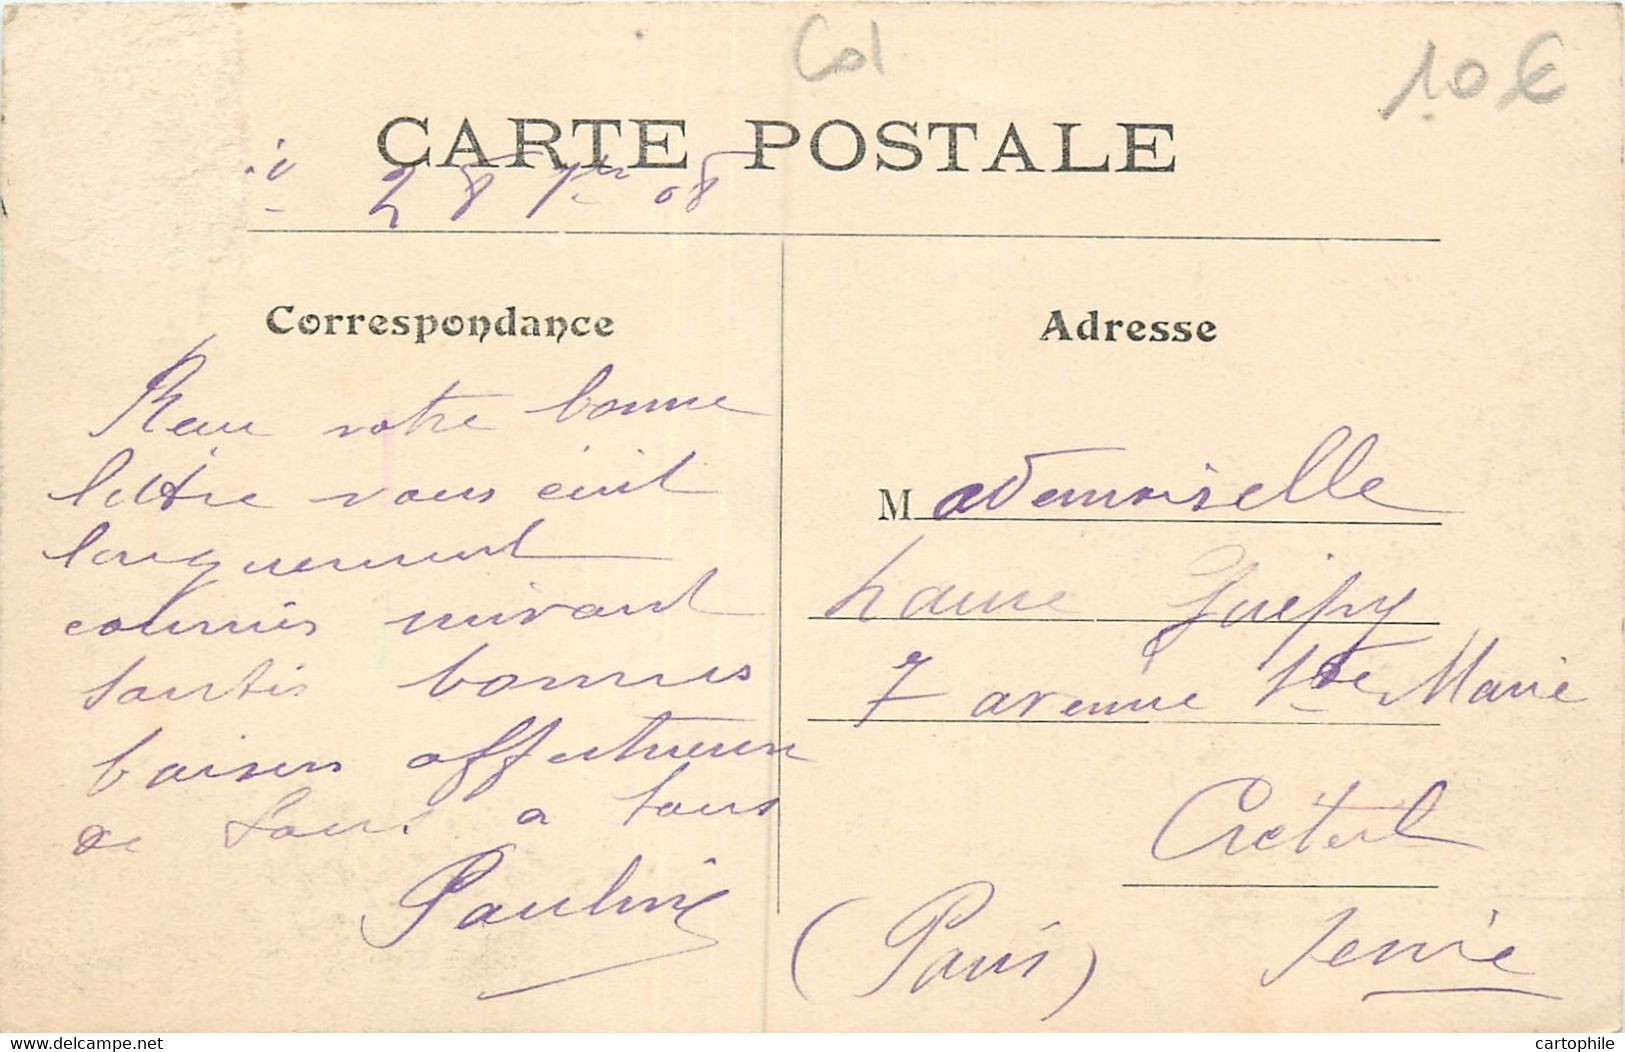 Col
10 €
CARTE POSTALE
28 7bre 08
Correspondance
Adresse
Reçu votre bonne
lettre vous écrit
longuement
courrier suivant
santés bonnes
baisers affectueux
de tous a tous
Pauline
Mademoiselle
Laure Guépy
7 avenue Ste Marie
Créteil
(Paris) Seine
cartophile
www.delcampe.net